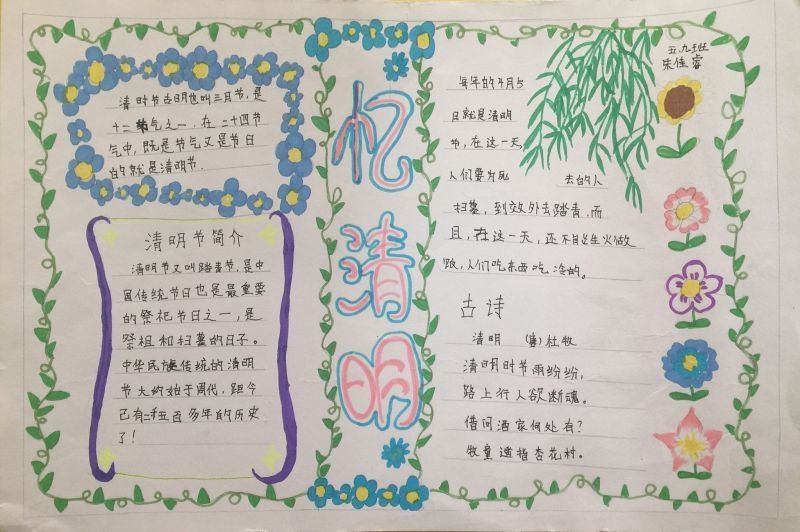 清时节古明也叫三月节,是
十二节气之一,在二十四节
气中,既是节气又是节日
的就是清明节.
清明节简介
清明节又叫踏青节,是中
国传统节日也是最重要
的祭祀节日之一,是
祭祖和扫墓的日子。
中华民族传统的清明
节大约始于周代,距今
已有二千五百多年的历史
了!
忆清明
五.九班
朱佳睿
每年的4月5
日就是清明
节,在这一天,
人们要为死去的人
扫墓,到效外去踏青,而
且,在这一天,还不能生火做
饭,人们吃东西吃冷的。
古诗
清明 (唐)杜牧
清明时节雨纷纷,
路上行人欲断魂。
借问酒家何处有?
牧童遥指杏花村。